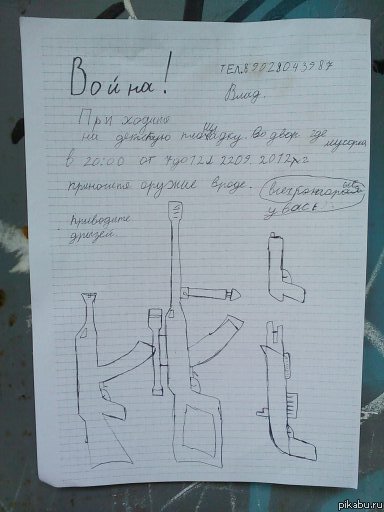 Война!
тел.89028043987
Влад.
Приходите
на детскую площадку. Во двор где мусорка
в 20:00 от 7 до 12 л 22 09. 2012 г
приносите оружие вроде.
у вас
Приводите
друзей.
pikabu.ru